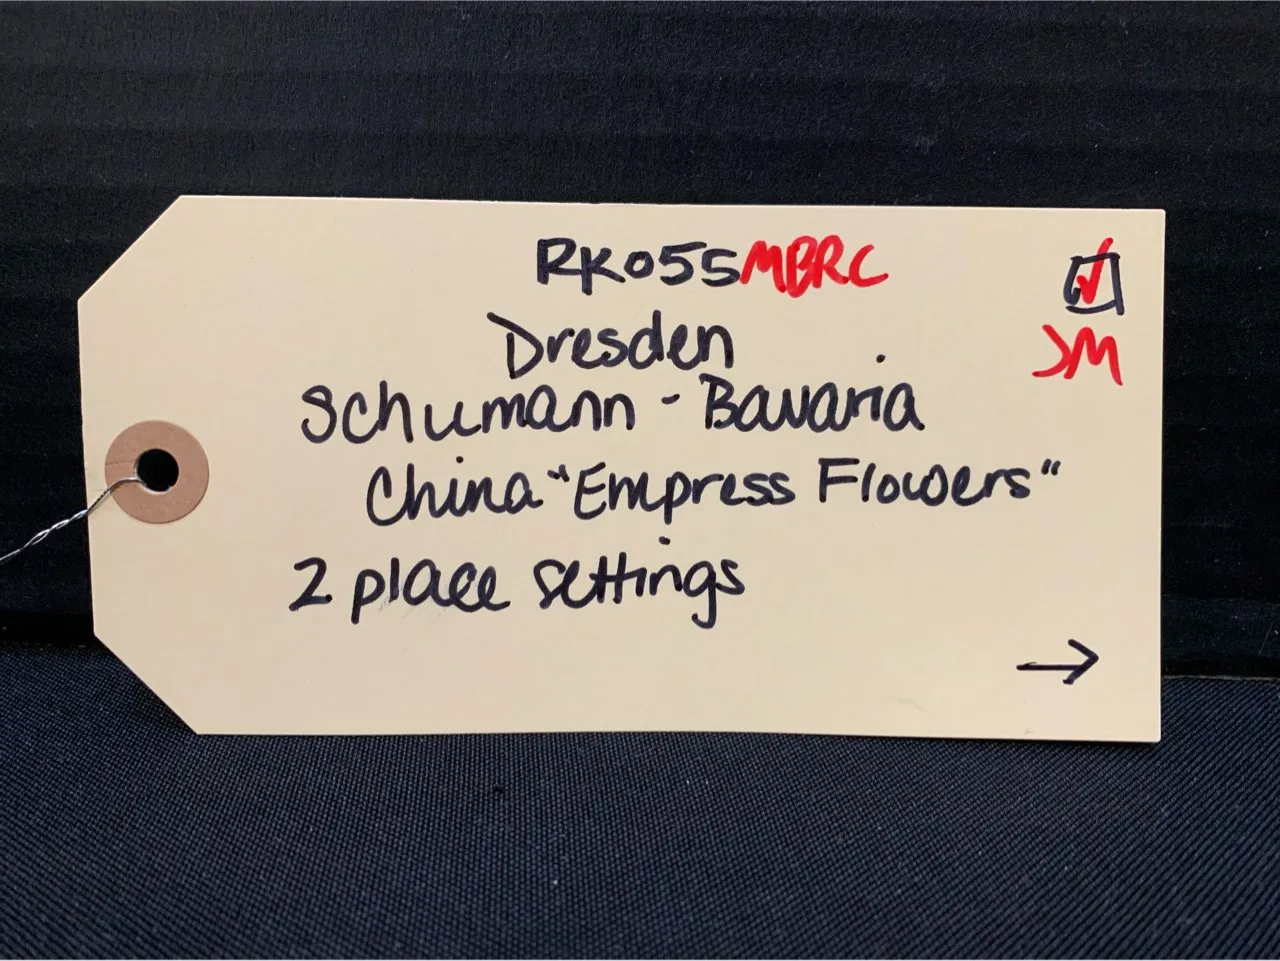 RK055MBRC
JM
Dresden
Schumann - Bavaria
China "Empress Flowers"
2 place settings